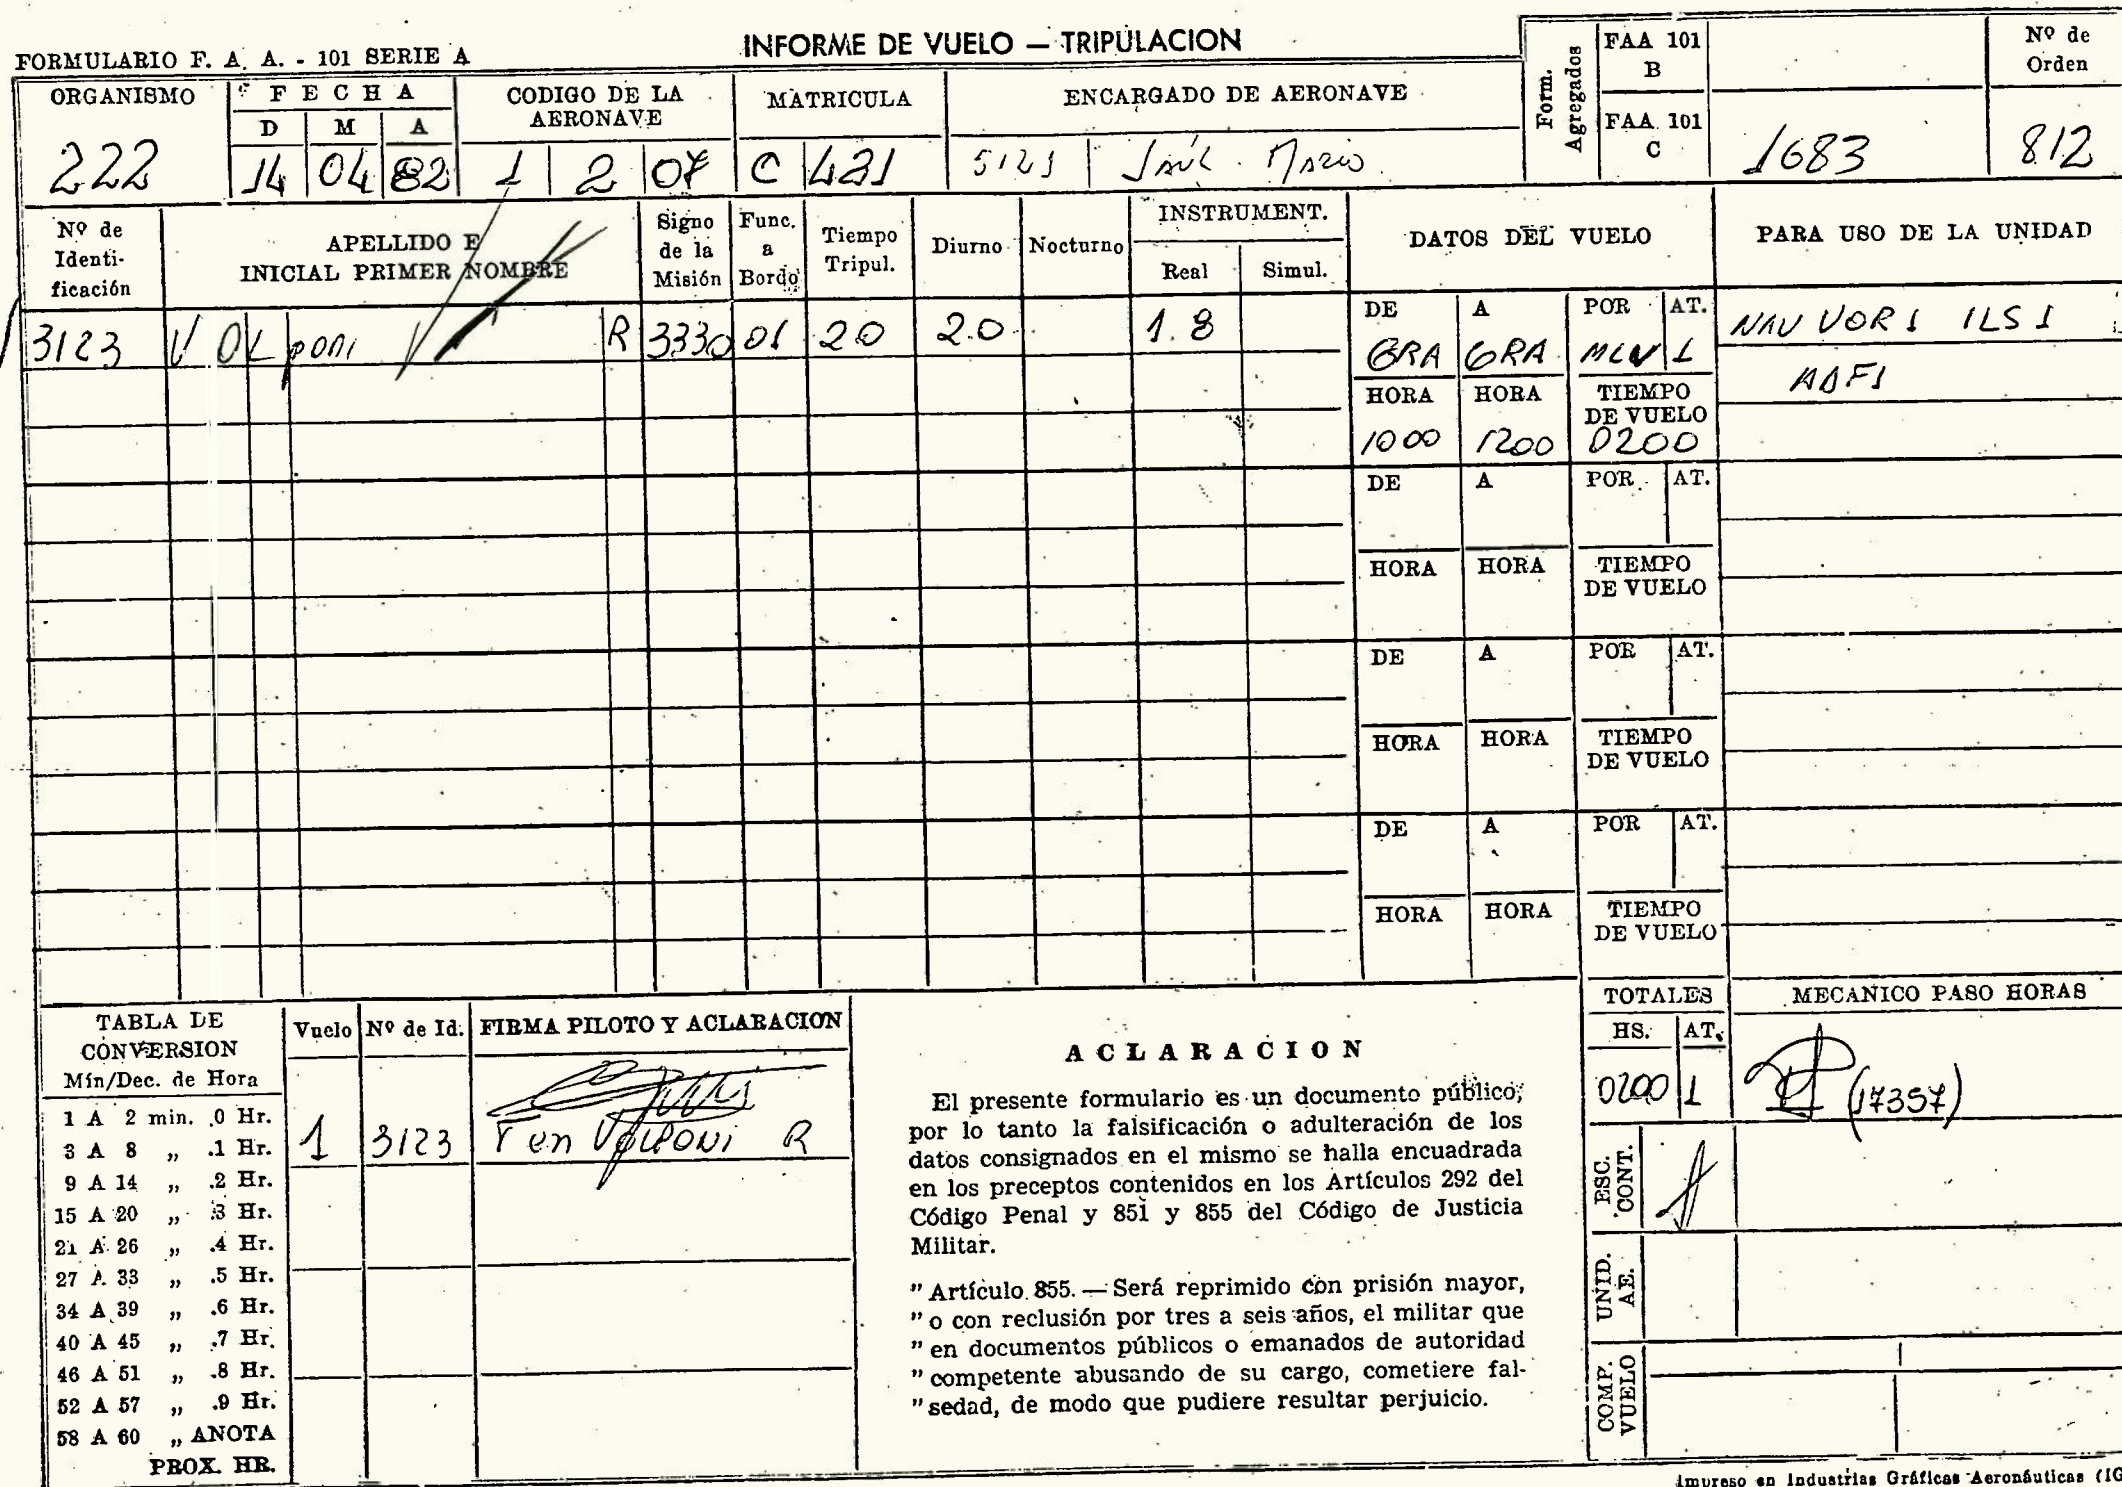 FORMULARIO F. A. A. - 101 SERIE A
INFORME DE VUELO — TRIPULACION
Form. Agregados
FAA 101 B
FAA 101 C
1683
Nº de Orden
812
ORGANISMO
222
FECHA
D M A
14 04 82
CODIGO DE LA AERONAVE
1 2 07
MATRICULA
C 421
ENCARGADO DE AERONAVE
Nº de Identificación
APELLIDO E INICIAL PRIMER NOMBRE
Signo de la Misión
Func. a Bordo
Tiempo Tripul.
Diurno
Nocturno
INSTRUMENT.
Real
Simul.
DATOS DEL VUELO
PARA USO DE LA UNIDAD
3123 VOLponi R 3330 01 20 2.0 1.8
DE A POR AT.
GRA GRA MLV 1
NAV VOR 1 ILS 1
ADF1
HORA HORA TIEMPO DE VUELO
1000 1200 0200
DE A POR AT.
HORA HORA TIEMPO DE VUELO
DE A POR AT.
HORA HORA TIEMPO DE VUELO
DE A POR AT.
HORA HORA TIEMPO DE VUELO
TABLA DE CONVERSION
Mín/Dec. de Hora
1 A 2 min. .0 Hr.
3 A 8 „ .1 Hr.
9 A 14 „ .2 Hr.
15 A 20 „ .3 Hr.
21 A 26 „ .4 Hr.
27 A 33 „ .5 Hr.
34 A 39 „ .6 Hr.
40 A 45 „ .7 Hr.
46 A 51 „ .8 Hr.
52 A 57 „ .9 Hr.
58 A 60 „ ANOTA
PROX. HR.
Vuelo Nº de Id. FIRMA PILOTO Y ACLARACION
1 3123 Ten Volponi R
ACLARACION
El presente formulario es un documento público;
por lo tanto la falsificación o adulteración de los
datos consignados en el mismo se halla encuadrada
en los preceptos contenidos en los Artículos 292 del
Código Penal y 851 y 855 del Código de Justicia
Militar.
" Artículo 855. — Será reprimido con prisión mayor,
" o con reclusión por tres a seis años, el militar que
" en documentos públicos o emanados de autoridad
" competente abusando de su cargo, cometiere fal-
" sedad, de modo que pudiere resultar perjuicio.
TOTALES
HS. AT.
0200 1
MECANICO PASO HORAS
(17357)
ESC. CONT.
UNID. AE.
COMP. VUELO
Impreso en Industrias Gráficas Aeronáuticas (IG